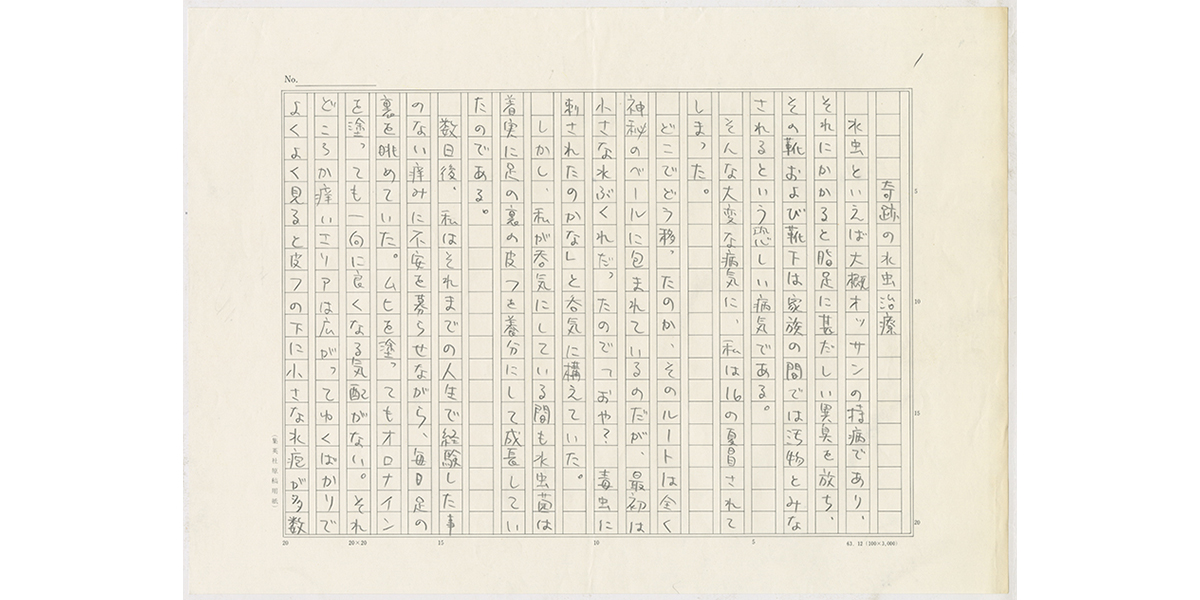 No.
奇跡の水虫治療
水虫といえば大概オッサンの持病であり、
それにかかると脂足に甚だしい異臭を放ち、
その靴および靴下は家族の間では汚物とみな
されるという恐しい病気である。
そんな大変な病気に、私は16の夏冒されて
しまった。
どこでどう移ったのか、そのルートは全く
神秘のベールに包まれているのだが、最初は
小さな水ぶくれだったので「おや? 毒虫に
刺されたのかな」と呑気に構えていた。
しかし、私が呑気にしている間も水虫菌は
着実に足の裏の皮フを養分にして成長してい
たのである。
数日後、私はそれまでの人生で経験した事
のない痒みに不安を募らせながら、毎日足の
裏を眺めていた。ムヒを塗ってもオロナイン
を塗っても一向に良くなる気配がない。それ
どころか痒いエリアは広がってゆくばかりで
よくよく見ると皮フの下に小さな水疱が多数
5
10
15
20
20
20×20
15
10
5
63. 12 (200×3,000)
(集英社原稿用紙)